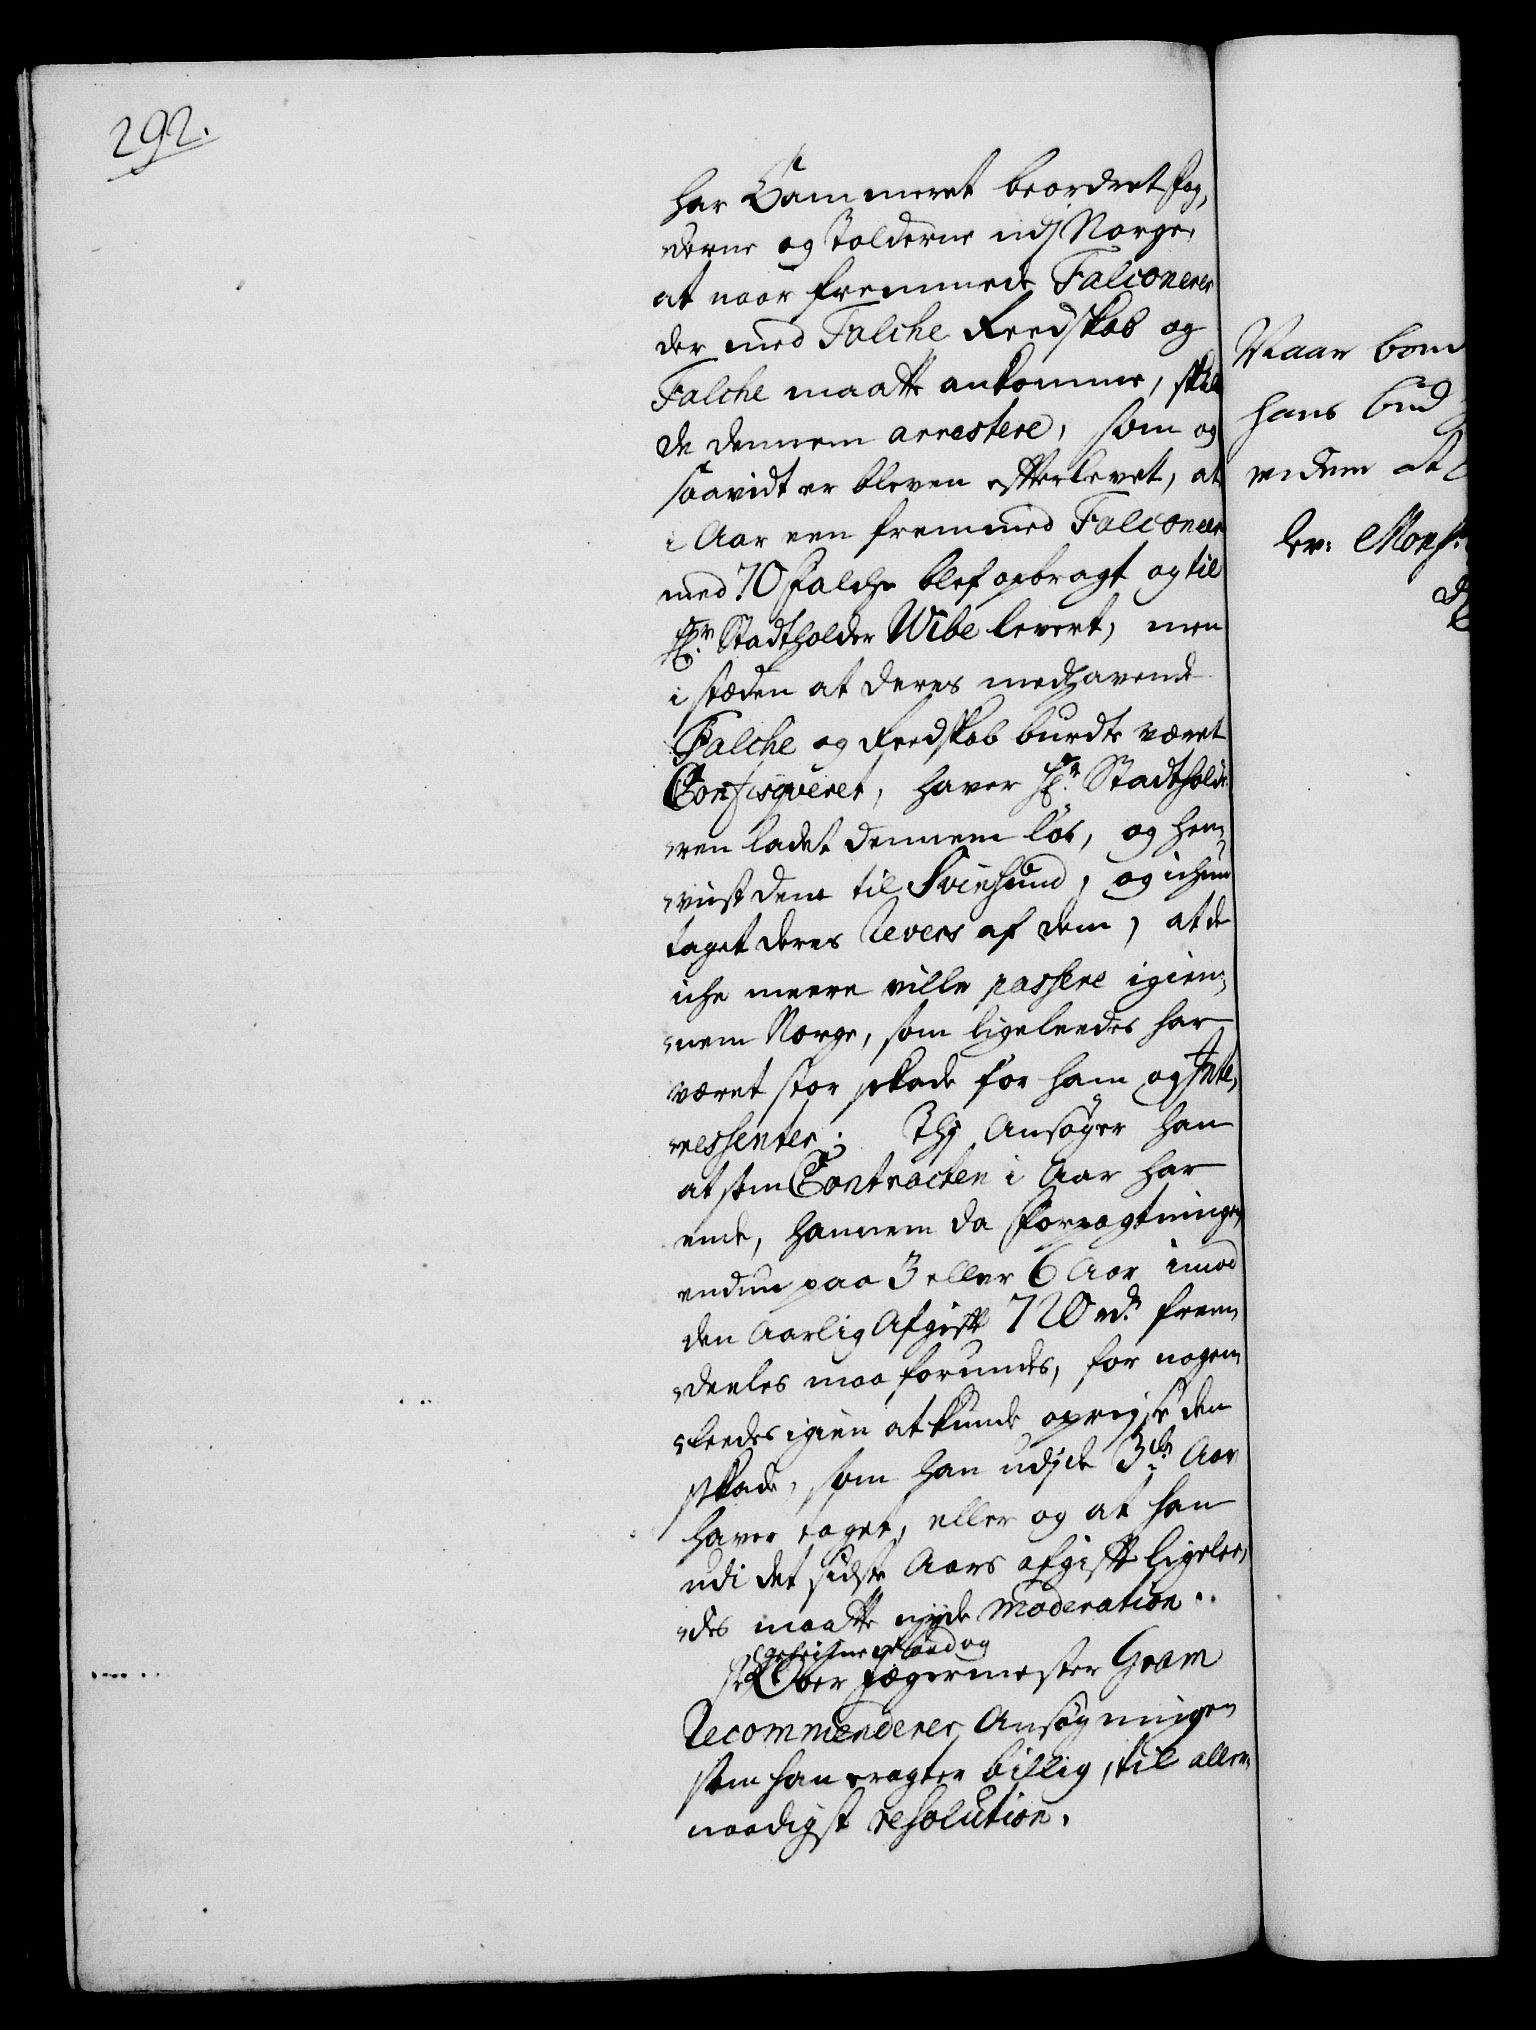 292.
har Cammeret beordret fog,
derne og Tolderne udj Norge,
at naar fremmede Falconerer
der med Falche Reedskab og
Falche maatte ankomme, skul
de dennem arrestere, som og
saavidt er bleven efterlevet, at
i Aar een fremmed Falconeer
med 70 Falche blef opbragt og til
Hr. Stadtholder Wibe levert, men
i stæden at deres medhavende
Falche og Reedskab burdte været
Confisqveret, haver Hr. Stadtholde
ren ladet dennem løs, og hen,
viist dem til Svinsund, og ichun
taget deres Revers af dem, at de
iche meere ville passere igien,
nem Norge, som ligeleedes har
været stor skade for ham og Inte,
ressenter; Thj Ansøger han
at som Contracten i Aar har
ende, hannem da Forpagtningen
endnu paa 3 eller 6 Aar imod
den Aarlig Afgift 720 rdr. frem,
deeles maa forundes, for nogen,
leedes igien at kunde oprejse den
skade, som han udj de 3de Aar
haver taget, eller og at han
udi det sidste Aars afgift ligelee,
des maatte nyde Moderation.
geheime Raad og
Hr. Ober Jægermester Gram
Recommenderer Ansøgningen
som han eragter billig, til aller,
naadigst resolution.
Naar bem
hans bud
at
Mons.